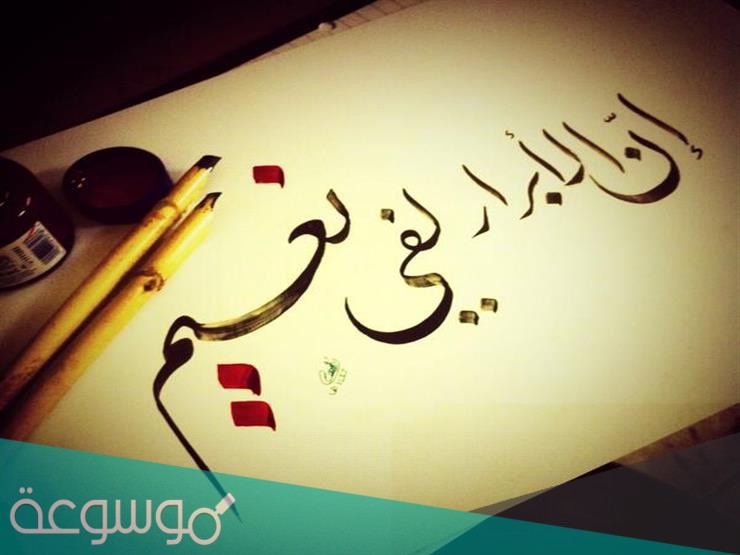 إنّ الأبرار لفي نعيم
موسوعة